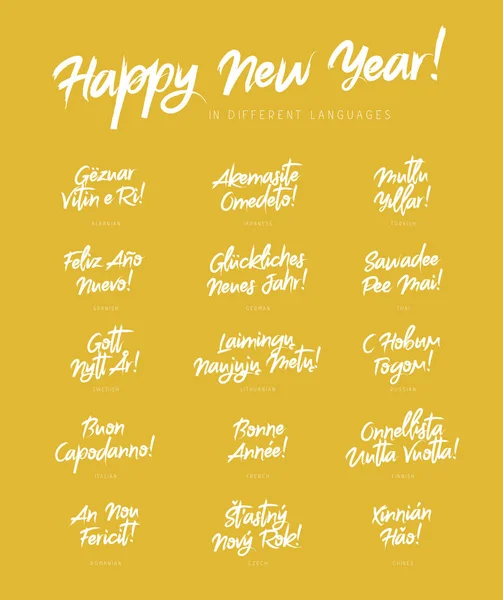 Happy New Year!
IN DIFFERENT LANGUAGES
Gëzuar
Vitin e Ri!
ALBANIAN
Akemasite
Omedeto!
JAPANESE
Mutlu
Yıllar!
TURKISH
Feliz Año
Nuevo!
SPANISH
Glückliches
Neues Jahr!
GERMAN
Sawadee
Pee Mai!
THAI
Gott
Nytt År!
SWEDISH
Laimingų
Naujųjų Metų!
LITHUANIAN
С Новым
Годом!
RUSSIAN
Buon
Capodanno!
ITALIAN
Bonne
Année!
FRENCH
Onnellista
Uutta Vuotta!
FINNISH
An Nou
Fericit!
ROMANIAN
Šťastný
Nový Rok!
CZECH
Xinnián
Hăo!